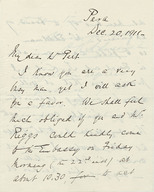 Pera
Dec. 20, 1911
My dear Mr Peet
I know you are a very
busy man, yet I will ask
for a favor. We shall feel
much obliged if you and Mr
Riggs could kindly come
to the Embassy on Friday
morning (the 22nd inst) at
about 10.30